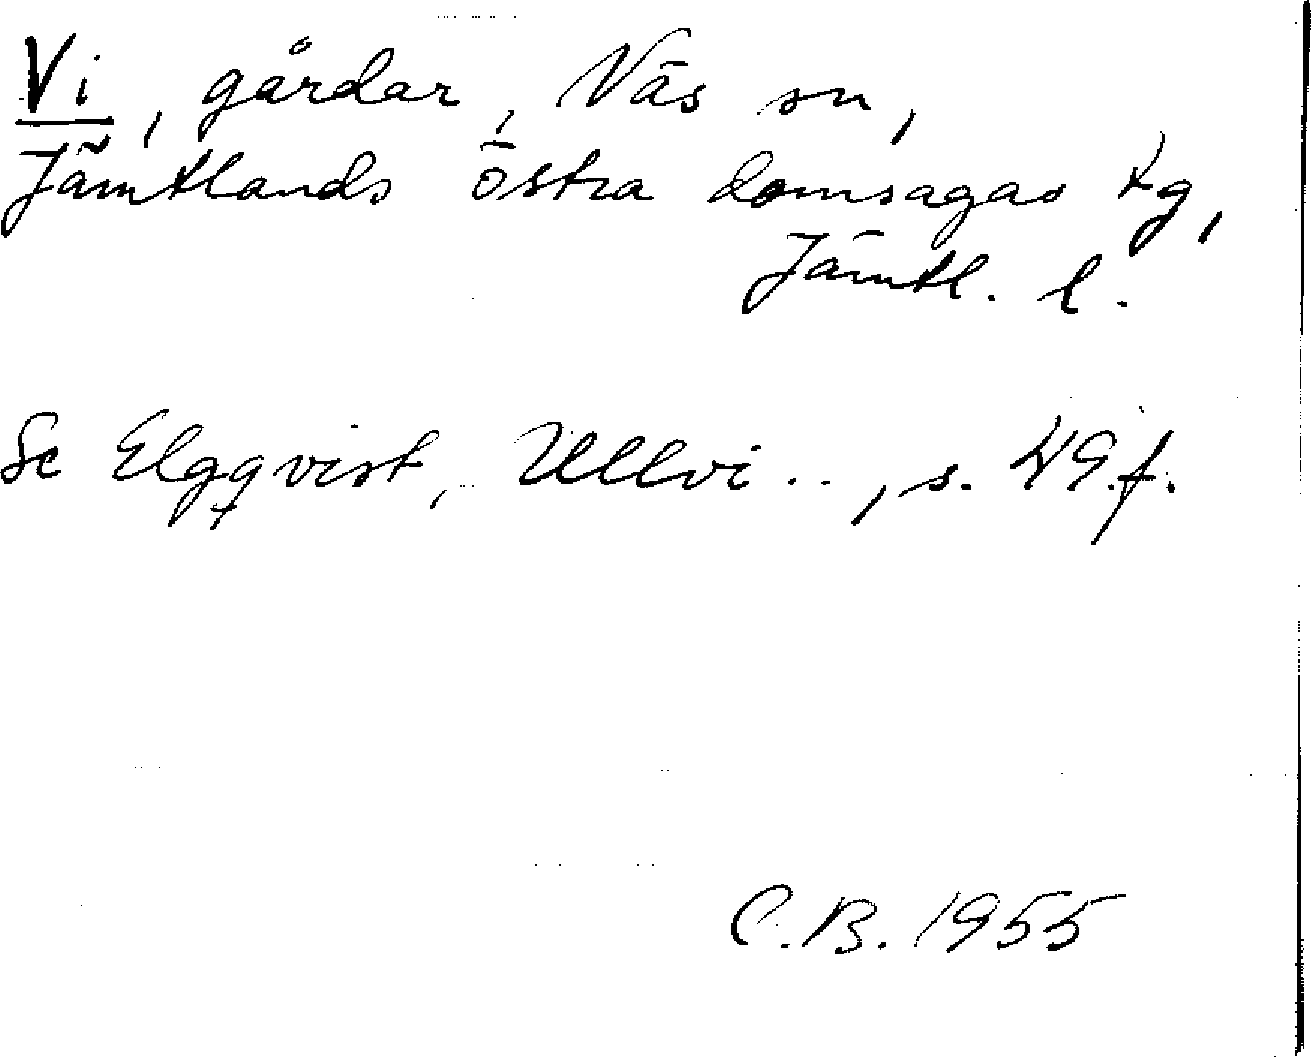 Vi, gårdar, Näs sn,
Jämtlands östra domsagas tg,
Jämtl. l.
Se Elgqvist, Ullvi.., s. 49 f.
C.B. 1955